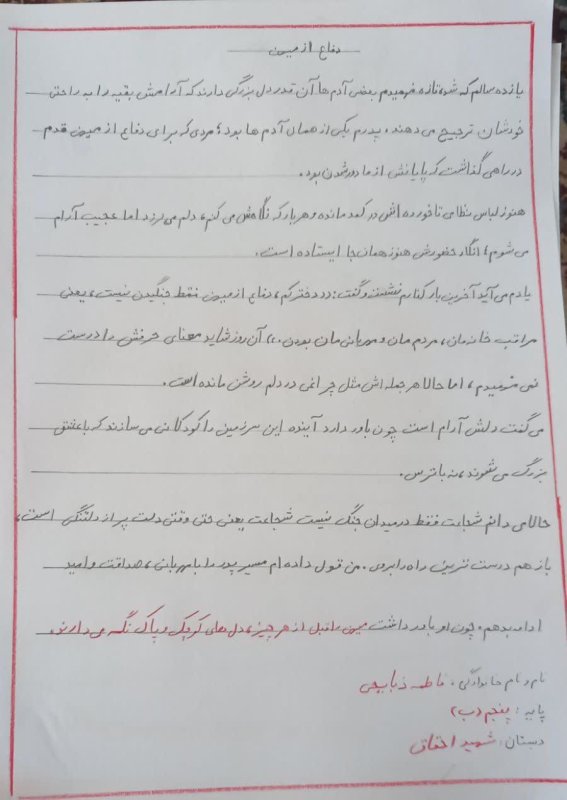 دفاع از میهن
یازده سالم که شد، تازه فهمیدم بعضی آدم ها آن قدر دل بزرگی دارند که آرامش بقیه را به راحتی
خودشان ترجیح می دهند، پدرم یکی از همان آدم ها بود؛ مردی که برای دفاع از میهن قدم
در راهی گذاشت که پایانش از ما دور شدن بود.
هنوز لباس نظامی تا خورده اش در کمد مانده و هر بار که نگاهش می کنم، دلم می لرزد اما عجیب آرام
می شوم؛ انگار حضورش هنوز همان جا ایستاده است.
یادم می آید آخرین بار کنارم نشست و گفت: ((دخترکم، دفاع از میهن فقط جنگیدن نیست، یعنی
مراقب خانه مان، مردم مان و مهربانی مان بودن.)) آن روز شاید معنای حرفش را درست
نمی فهمیدم، اما حالا هر جمله اش مثل چراغی در دلم روشن مانده است.
می گفت دلش آرام است چون باور دارد آینده این سرزمین را کودکانی می سازند که با عشق
بزرگ می شوند، نه با ترس.
حالا می دانم شجاعت فقط در میدان جنگ نیست شجاعت یعنی حتی وقتی دلت پر از دلتنگی است،
باز هم درست ترین راه را بروی. من قول داده ام مسیر پدر را با مهربانی، صداقت و امید
ادامه بدهم، چون او باور داشت میهن را قبل از هر چیز، دل های کوچک و پاک نگه می دارند.
نام و نام خانوادگی: فاطمه ذبایحی
پایه: پنجم (ب۲
دبستان: شهید احقاقی